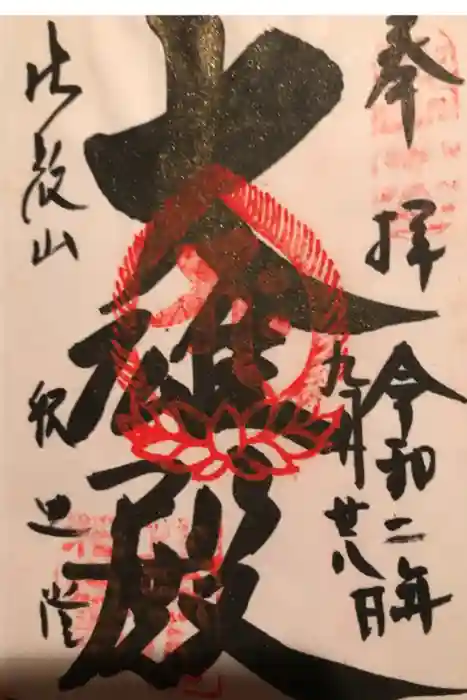 奉拝
令和二年
九月廿八日
大雄殿
比叡山
釈迦堂